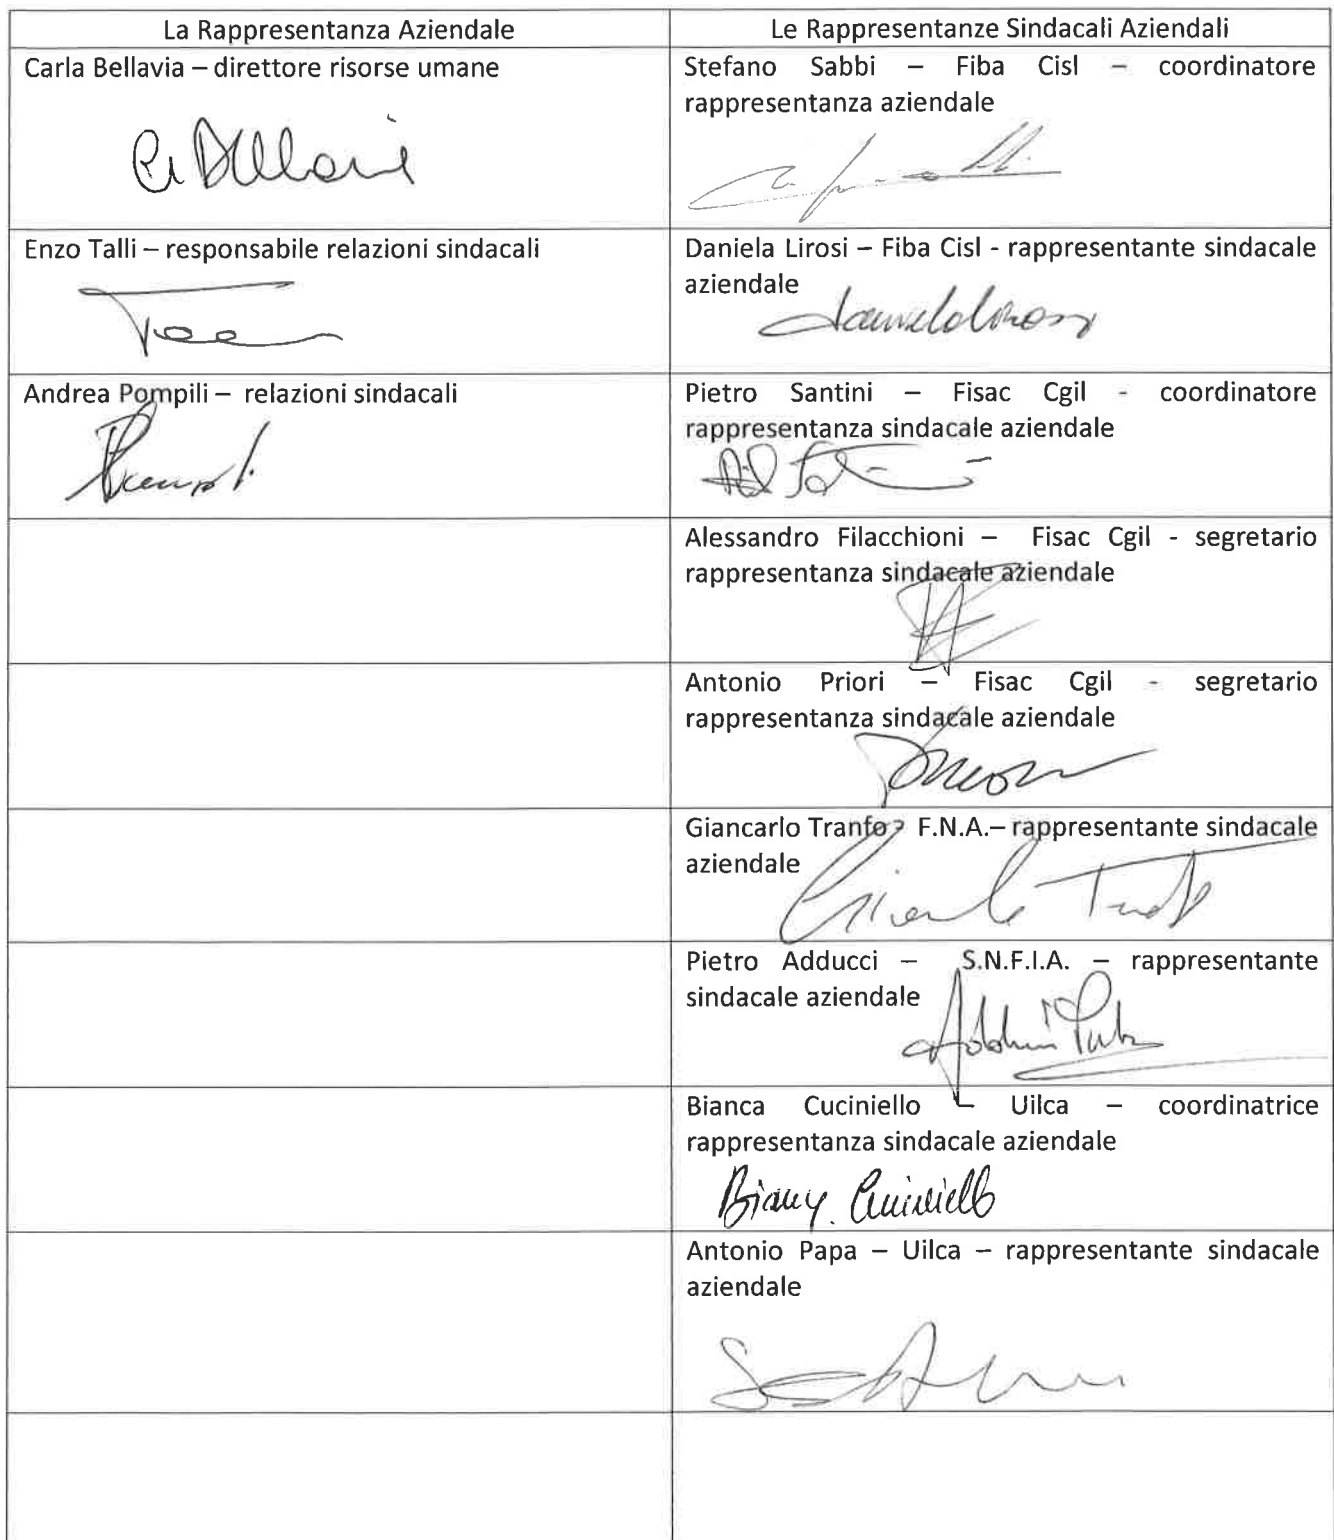 La Rappresentanza Aziendale
Le Rappresentanze Sindacali Aziendali
Carla Bellavia – direttore risorse umane
Stefano Sabbi – Fiba Cisl – coordinatore
rappresentanza aziendale
Enzo Talli – responsabile relazioni sindacali
Daniela Lirosi – Fiba Cisl - rappresentante sindacale
aziendale
Andrea Pompili – relazioni sindacali
Pietro Santini – Fisac Cgil - coordinatore
rappresentanza sindacale aziendale
Alessandro Filacchioni – Fisac Cgil - segretario
rappresentanza sindacale aziendale
Antonio Priori – Fisac Cgil - segretario
rappresentanza sindacale aziendale
Giancarlo Tranfo - F.N.A.– rappresentante sindacale
aziendale
Pietro Adducci – S.N.F.I.A. – rappresentante
sindacale aziendale
Bianca Cuciniello – Uilca – coordinatrice
rappresentanza sindacale aziendale
Antonio Papa – Uilca – rappresentante sindacale
aziendale